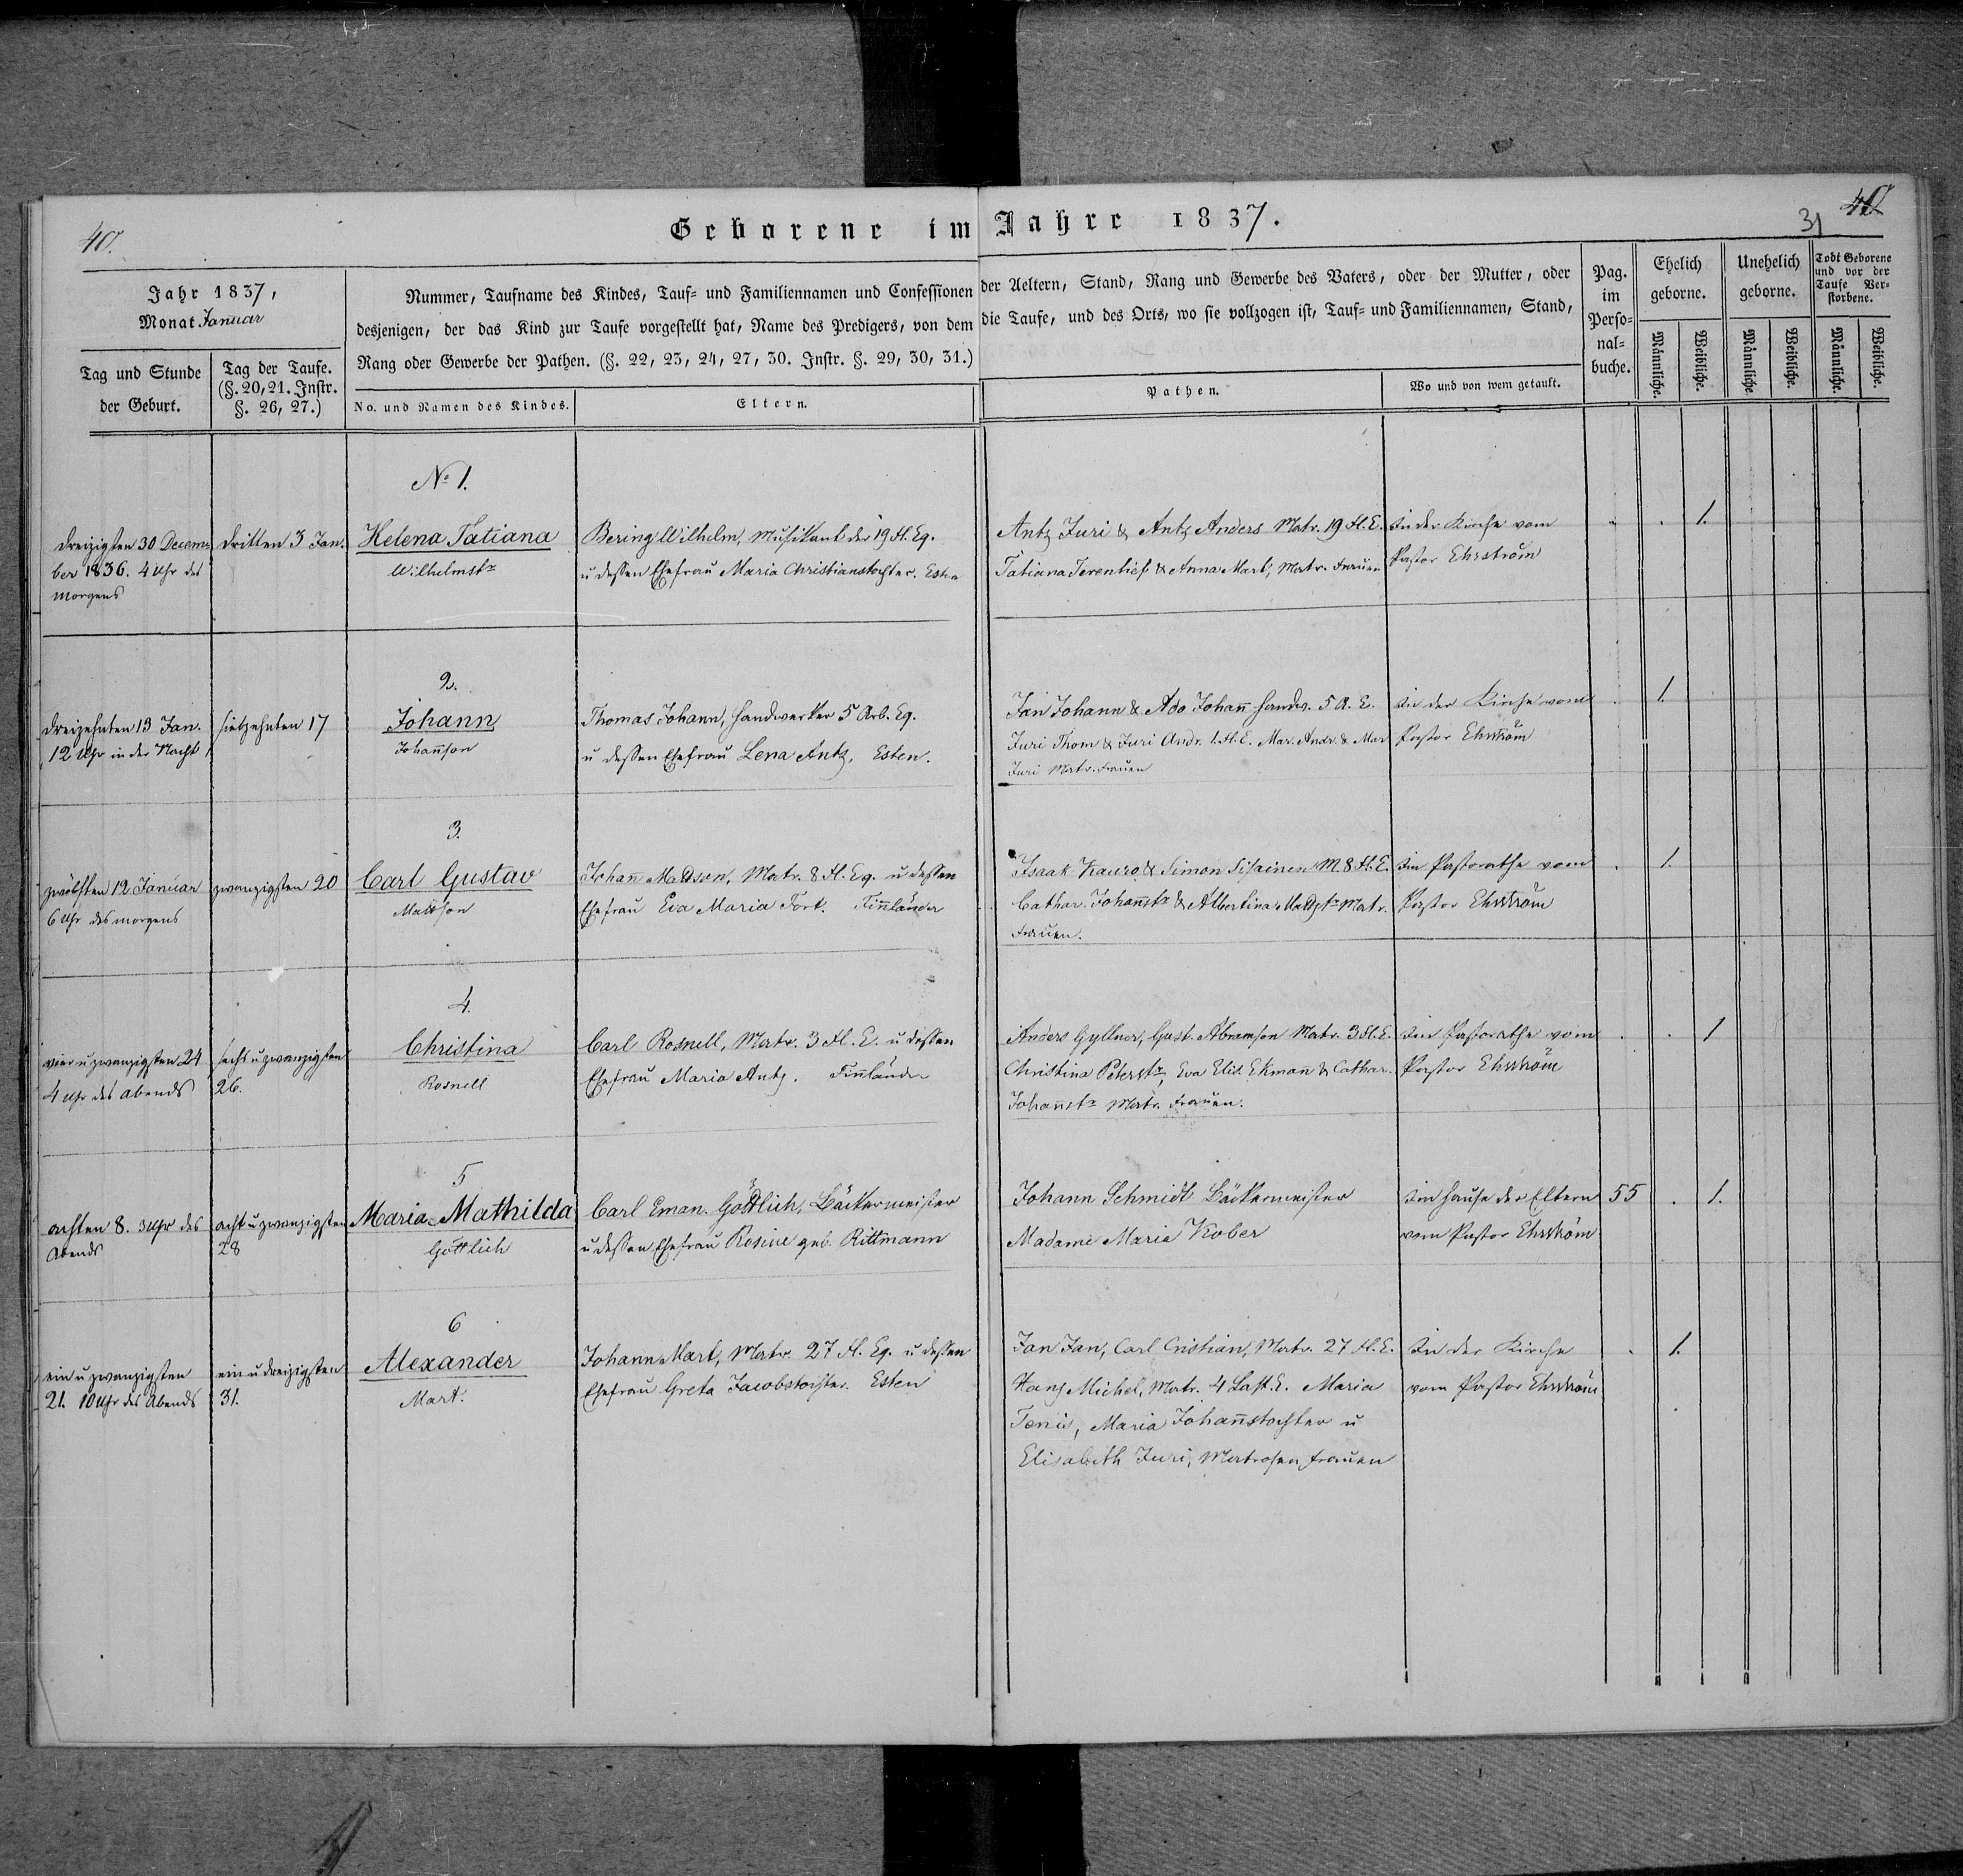 40.
Geborene im Jahre 1837.
31
Jahr 1837,
Monat Januar
Tag und Stunde
der Geburt.
Tag der Taufe.
(§. 20, 21. Instr.
§. 26, 27.)
Nummer, Taufname des Kindes, Tauf- und Familiennamen und Confessionen der Aeltern, Stand, Rang und Gewerbe des Vaters, oder der Mutter, oder
desjenigen, der das Kind zur Taufe vorgestellt hat, Name des Predigers, von dem die Taufe, und des Orts, wo sie vollzogen ist, Tauf- und Familiennamen, Stand,
Rang oder Gewerbe der Pathen. (§. 22, 23, 24, 27, 30. Instr. §. 29, 30, 31.)
No. und Namen des Kindes.
Eltern.
Pathen.
Wo und von wem getauft.
Pag.
im
Perso-
nal-
buche.
Ehelich
geborne.
Unehelich
geborne.
Todt Geborene
und vor der
Taufe Ver-
storbene.
Männliche.
Weibliche.
Männliche
Weibliche.
Männliche.
Weibliche.
No 1.
dreizigsten 30 Decem-
ber 1836. 4 Uhr des
Morgens
dritten 3 Jan.
Helena Tatiana
Wilhelmstr
Bering Wilhelm, Musikant der 19 Fl. Eq.
u dessen Ehefrau Maria Christianstochter. Esten
Antz Juri & Antz Anders Matr. 19 Fl. E.
Tatiana Terentief & Anna Mart, Matr. Frauen
In der Kirche vom
Pastor Ehrström
1.
2.
dreizehnten 13 Jan.
12 Uhr in der Nacht
siebzehnten 17
Johann
Johañson
Thomas Johann, Handwerker 5 Arb. Eq.
u dessen Ehefrau Lena Antz, Esten.
Jan Johann & Ado Johañ Handw. 5 A. E.
Juri Thom & Juri Andr. 1. Fl. E. Mar. Andr. & Mar
Juri Matr. Frauen
In der Kirche vom
Pastor Ehrström
1.
3.
zwölften 12 Januar
6 Uhr des morgens
zwanzigsten 20
Carl Gustav
Mattson
Johañ Mattson, Matr. 8 Fl. Eq. u dessen
Ehefrau Eva Maria Tort. Fiñländer
Isaak Kauro & Simon Sisainen M. 8 Fl. E.
Cathar. Johañstr & Albertina Mattstr Matr.
Frauen.
Im Pastorathe vom
Pastor Ehrström
1.
4.
vier u zwanzigsten 24
4 Uhr des abends
sechs u zwanzigsten
26.
Christina
Rosnell
Carl Rosnell, Matr. 3 Fl. E. u dessen
Ehefrau Maria Antz. Fiñländer
Anders Gyllner, Gust. Abramson Matr. 3 Fl. E.
Christina Peterstr, Eva Elis. Ekman & Cathar.
Johañstr Matr. Frauen.
Im Pastorathe vom
Pastor Ehrström
1
5
achten 8. 3 Uhr des
Abends
acht u zwanzigsten
28
Maria Mathilda
Göttlich
Carl Eman. Göttlich, Bäckermeister
u dessen Ehefrau Rosine geb. Rittmann
Johann Schmidt Bäckermeister
Madame Maria Kober
Im Hause der Eltern
vom Pastor Ehrström
55
1.
6
ein u zwanzigsten
21. 10 Uhr des Abends
ein u dreizigsten
31.
Alexander
Mart.
Johann Mart, Matr. 27 Fl. Eq. u dessen
Ehefrau Greta Jacobstochter. Esten
Jan Jan, Carl Cristian, Matr. 27 Fl. E.
Hans Michel, Matr. 4 Last. E. Maria
Tenis, Maria Johañstochter u
Elisabeth Juri, Matrosen frauen
In der Kirche
vom Pastor Ehrström
1.